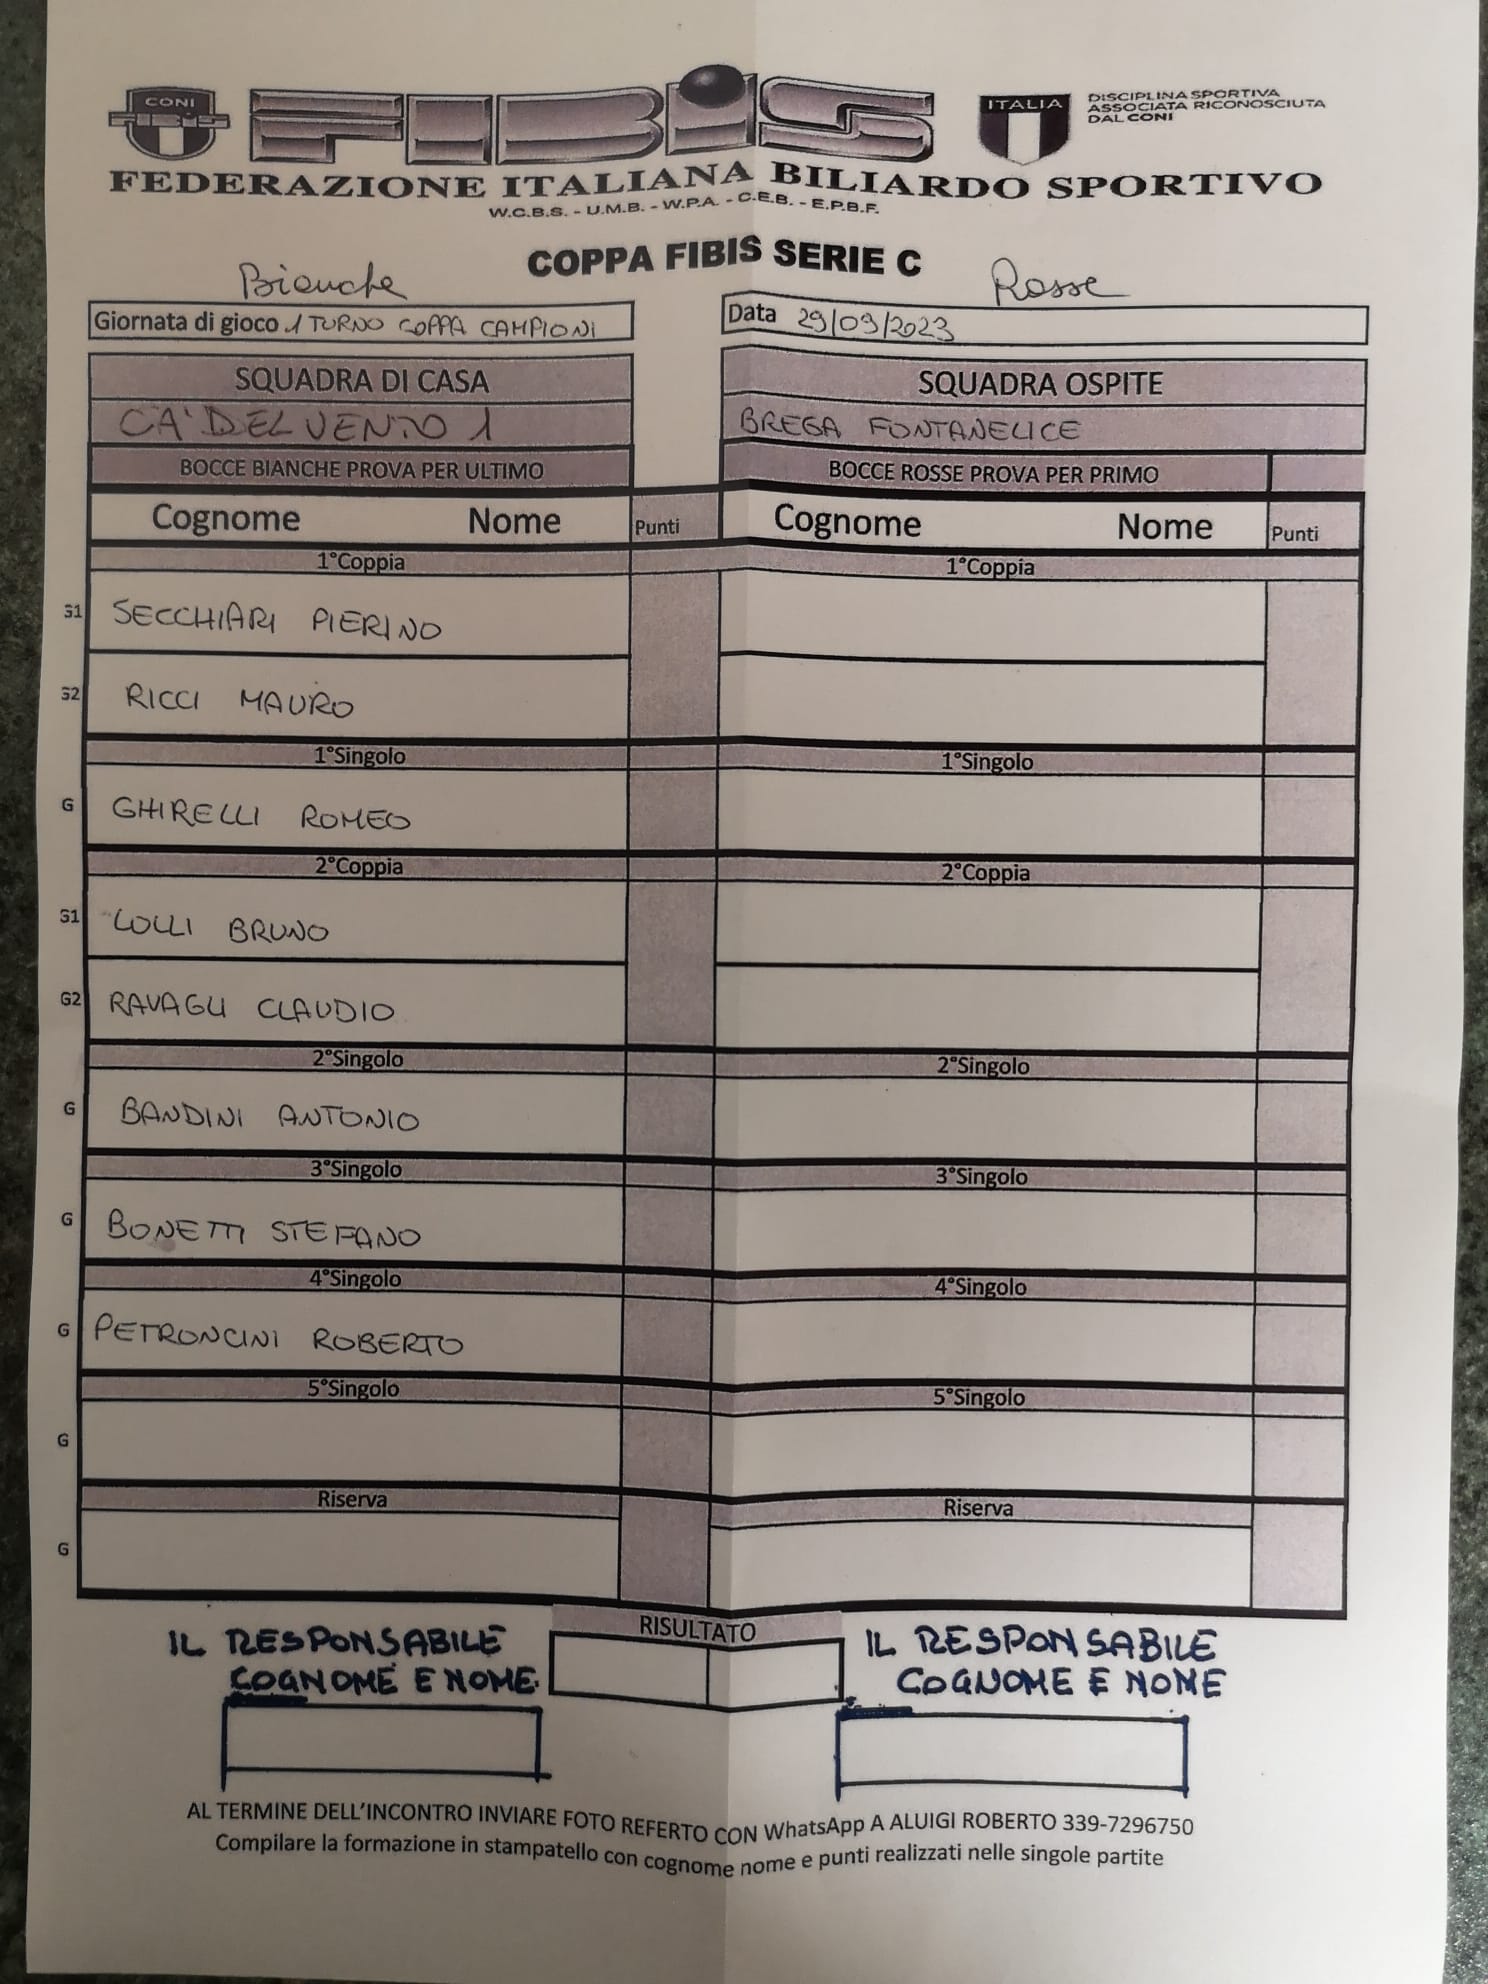 CONI
FIBIS
FIBIS
ITALIA
DISCIPLINA SPORTIVA
ASSOCIATA RICONOSCIUTA
DAL CONI
FEDERAZIONE ITALIANA BILIARDO SPORTIVO
W.C.B.S. - U.M.B. - W.P.A. - C.E.B. - E.P.B.F.
COPPA FIBIS SERIE C
Bianche Rosse
Giornata di gioco 1 TURNO COPPA CAMPIONI Data 29/09/2023
SQUADRA DI CASA SQUADRA OSPITE
CA' DEL VENTO 1 BREGA FONTANELICE
BOCCE BIANCHE PROVA PER ULTIMO BOCCE ROSSE PROVA PER PRIMO
Cognome Nome Punti Cognome Nome Punti
1°Coppia 1°Coppia
S1 SECCHIARI PIERINO
S2 RICCI MAURO
1°Singolo 1°Singolo
G GHIRELLI ROMEO
2°Coppia 2°Coppia
S1 LOLLI BRUNO
G2 RAVAGLI CLAUDIO
2°Singolo 2°Singolo
G BANDINI ANTONIO
3°Singolo 3°Singolo
G BONETTI STEFANO
4°Singolo 4°Singolo
G PETRONCINI ROBERTO
5°Singolo 5°Singolo
G
Riserva Riserva
G
RISULTATO
IL RESPONSABILE IL RESPONSABILE
COGNOME E NOME. COGNOME E NOME
AL TERMINE DELL'INCONTRO INVIARE FOTO REFERTO CON WhatsApp A ALUIGI ROBERTO 339-7296750
Compilare la formazione in stampatello con cognome nome e punti realizzati nelle singole partite